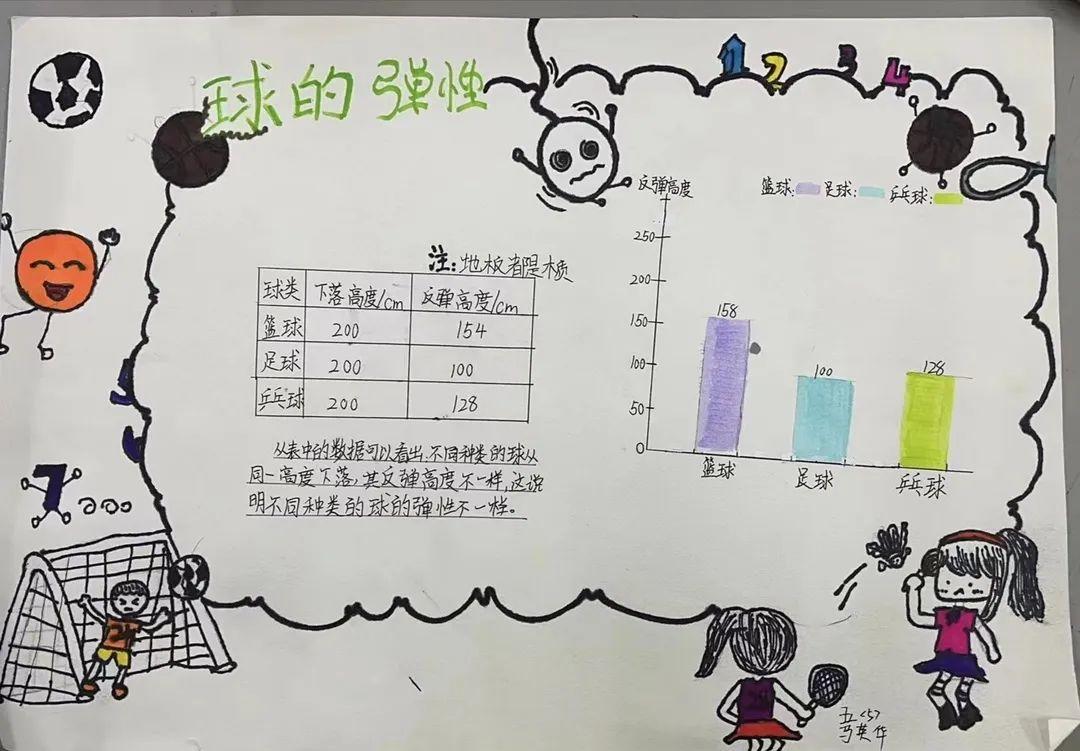 球的弹性
1 2 3 4
反弹高度
篮球: 足球: 乒乓球:
250
200
150
100
50
0
158
100
128
篮球 足球 乒乓球
注:地板都是木质
球类 下落高度/cm 反弹高度/cm
篮球 200 154
足球 200 100
乒乓球 200 128
从表中的数据可以看出,不同种类的球从
同一高度下落,其反弹高度不一样,这说
明不同种类的球的弹性不一样。
5
6
7
五<5>
马英华